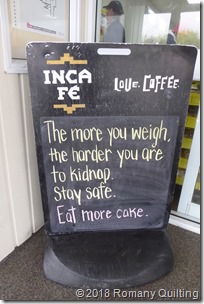 INCA
FÉ
Love. Coffee.
The more you weigh,
the harder you are
to kidnap.
Stay safe.
Eat more cake.
©2018 Romany Quilting